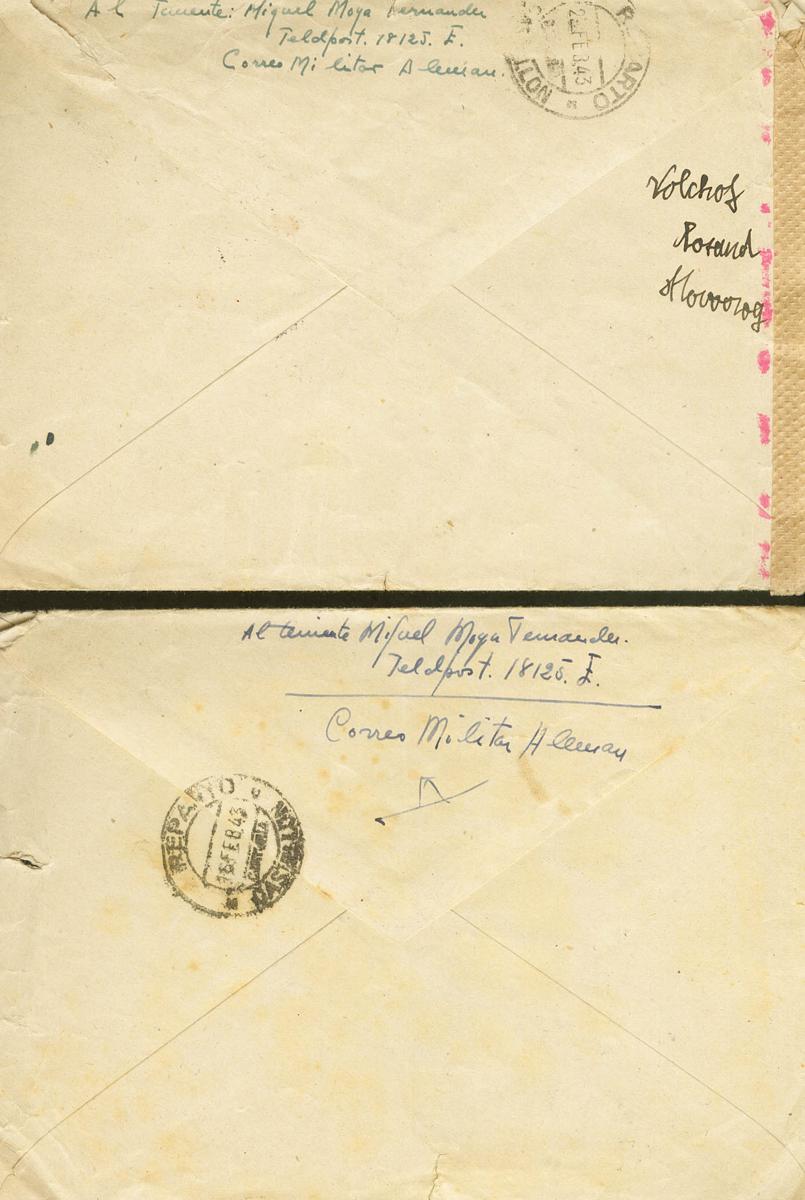 Al Teniente: Miguel Moya Fernandez
Feldpost. 18125. E.
Correo Militar Aleman.
ARTO CASTELLON
FEB.43
Volchof
Possad
Novorog
Al teniente Miguel Moya Fernandez.
Feldpost. 18125. E.
Correo Militar Aleman
REPARTO CASTELLON
FEB.43
CARTERIA